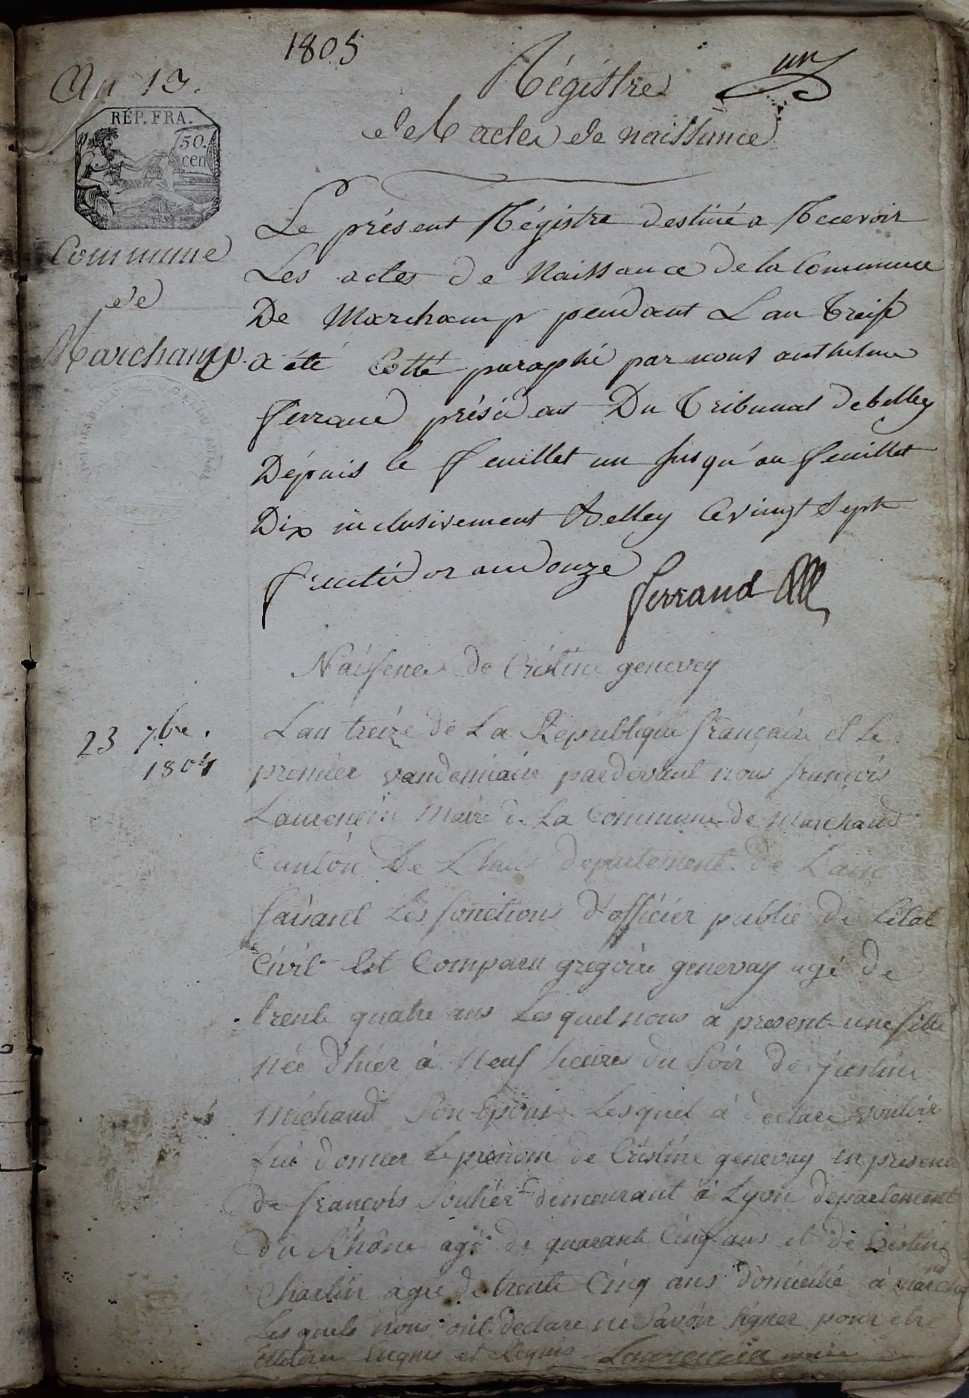 1805
An 13.
Régistre
un
des actes de naissance
RÉP. FRA.
50.
cen
Commune
de
Marchamp.
Le présent Régistre destiné a Recevoir
Les actes de Naissance de la Commune
De Marchamp pendant L'an treise
a été Cotté paraphé par nous anthelme
ferrand président Du Tribunal de belley
Dépuis le feuillet un Jusqu'au feuillet
Dix inclusivement Belley ce vingt Sept
fructidor an douze
ferrand
Naissence De Cristine genevey
23 7bre.
1804
Lan treize de La Republique française et le
premier vandemiaire pardevant nous françois
Laurencin Maire de La Commune de Marchand
Canton De Lhuis departement de Lain
faisant Les fonctions d'officier public de Letat
Civil Est Comparu gregoire genevay agé de
trente quatre ans Lesquel nous a present une fille
née d'hier à Neuf heures du Soir de
Michaud Son Epouse Lesquel à declare vouloir
Lui donner Le prenom de Cristine genevay en presence
de françois Soulier demeurant à Lyon departement
du Rhône agé de quarante Cinq ans et de Cristine
Charlin agée de trente Cinq ans domicilié à marchand
Lesquels nous ont declare ne Savoir Signer pour etre
Laurencin maire